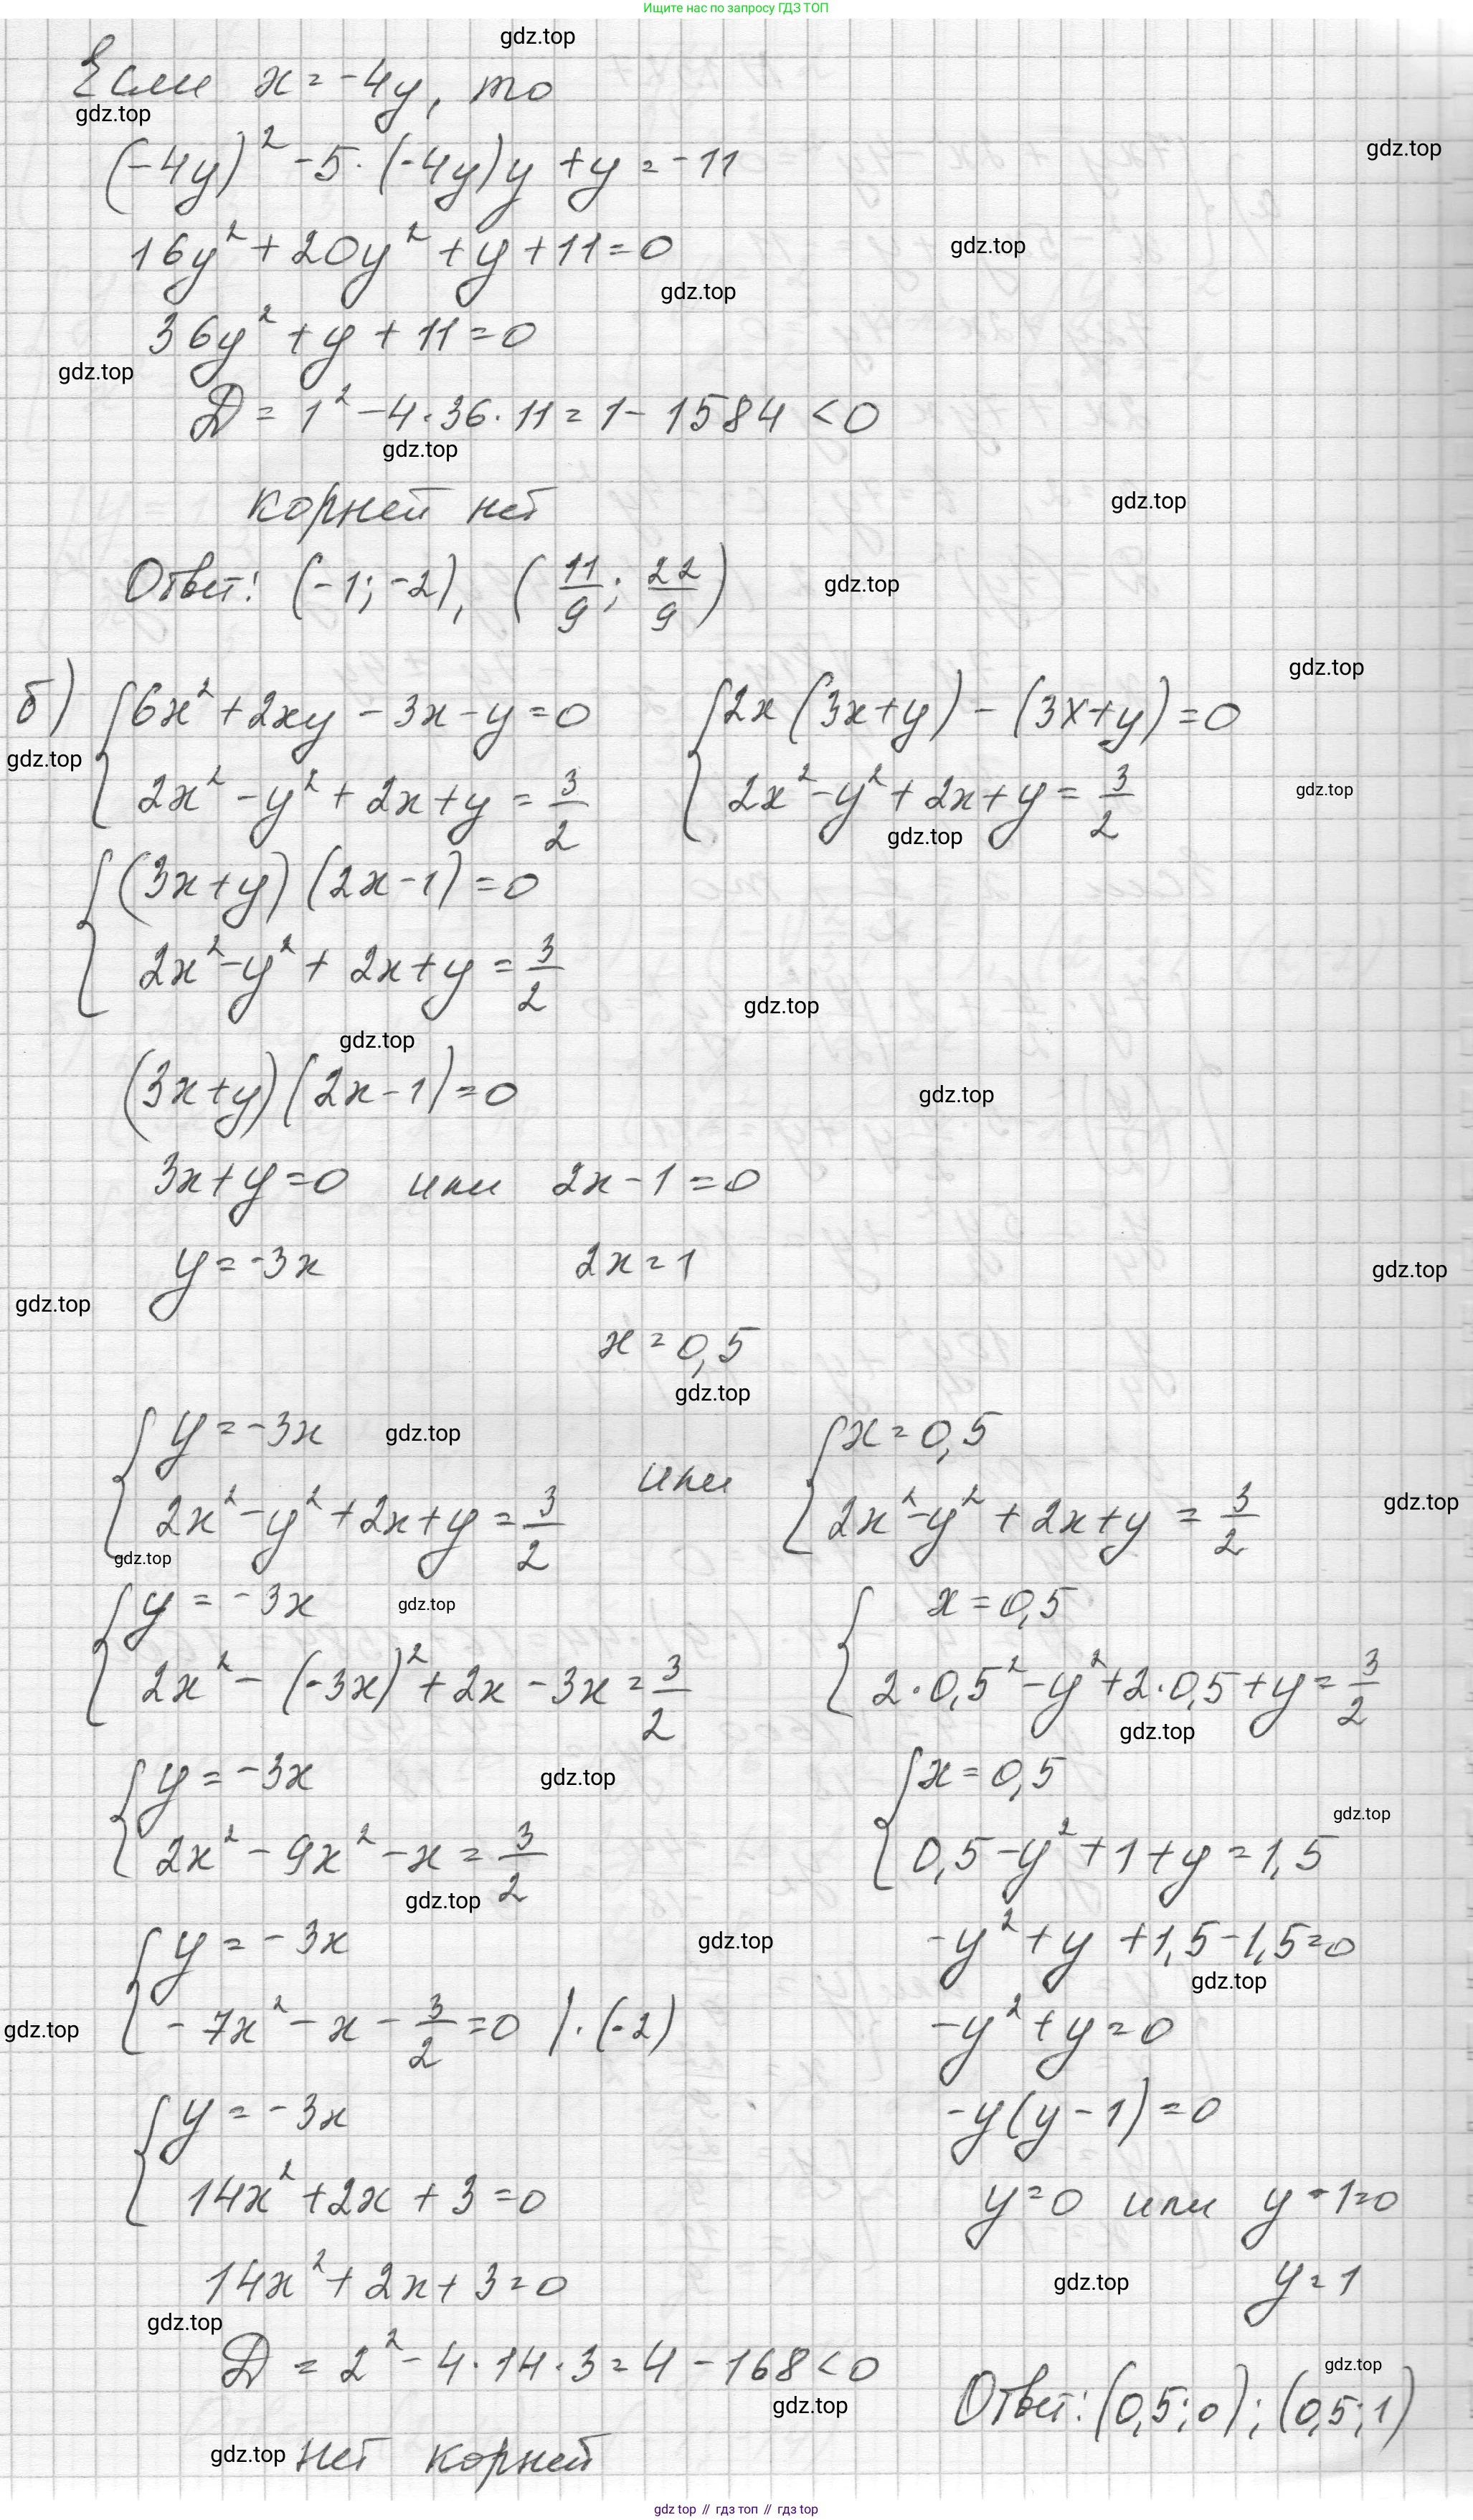 Ищите нас по запросу ГДЗ ТОП
gdz.top
Если x = -4y, то
gdz.top
(-4y)² - 5·(-4y)y + y = -11
gdz.top
16y² + 20y² + y + 11 = 0
gdz.top
gdz.top
36y² + y + 11 = 0
gdz.top
D = 1² - 4·36·11 = 1 - 1584 < 0
gdz.top
корней нет
gdz.top
Ответ: (-1; -2), (11/9; 22/9)
gdz.top
gdz.top
б) {6x² + 2xy - 3x - y = 0 {2x(3x+y) - (3x+y) = 0
gdz.top
2x² - y² + 2x + y = 3/2 2x² - y² + 2x + y = 3/2
gdz.top
gdz.top
{(3x+y)(2x-1) = 0
2x² - y² + 2x + y = 3/2
gdz.top
gdz.top
(3x+y)(2x-1) = 0
gdz.top
3x + y = 0 или 2x - 1 = 0
y = -3x 2x = 1
gdz.top
gdz.top
x = 0,5
gdz.top
{y = -3x gdz.top {x = 0,5
или
2x² - y² + 2x + y = 3/2 2x² - y² + 2x + y = 3/2
gdz.top
gdz.top
{y = -3x gdz.top {x = 0,5
2x² - (-3x)² + 2x - 3x = 3/2 2·0,5² - y² + 2·0,5 + y = 3/2
gdz.top
{y = -3x gdz.top {x = 0,5
gdz.top
2x² - 9x² - x = 3/2 0,5 - y² + 1 + y = 1,5
gdz.top
{y = -3x gdz.top -y² + y + 1,5 - 1,5 = 0
gdz.top
gdz.top -7x² - x - 3/2 = 0 |·(-2) -y² + y = 0
{y = -3x -y(y-1) = 0
14x² + 2x + 3 = 0 y = 0 или y - 1 = 0
14x² + 2x + 3 = 0 gdz.top y = 1
gdz.top
D = 2² - 4·14·3 = 4 - 168 < 0
gdz.top
gdz.top
Ответ: (0,5; 0); (0,5; 1)
gdz.top нет корней
gdz top // гдз топ // гдз top